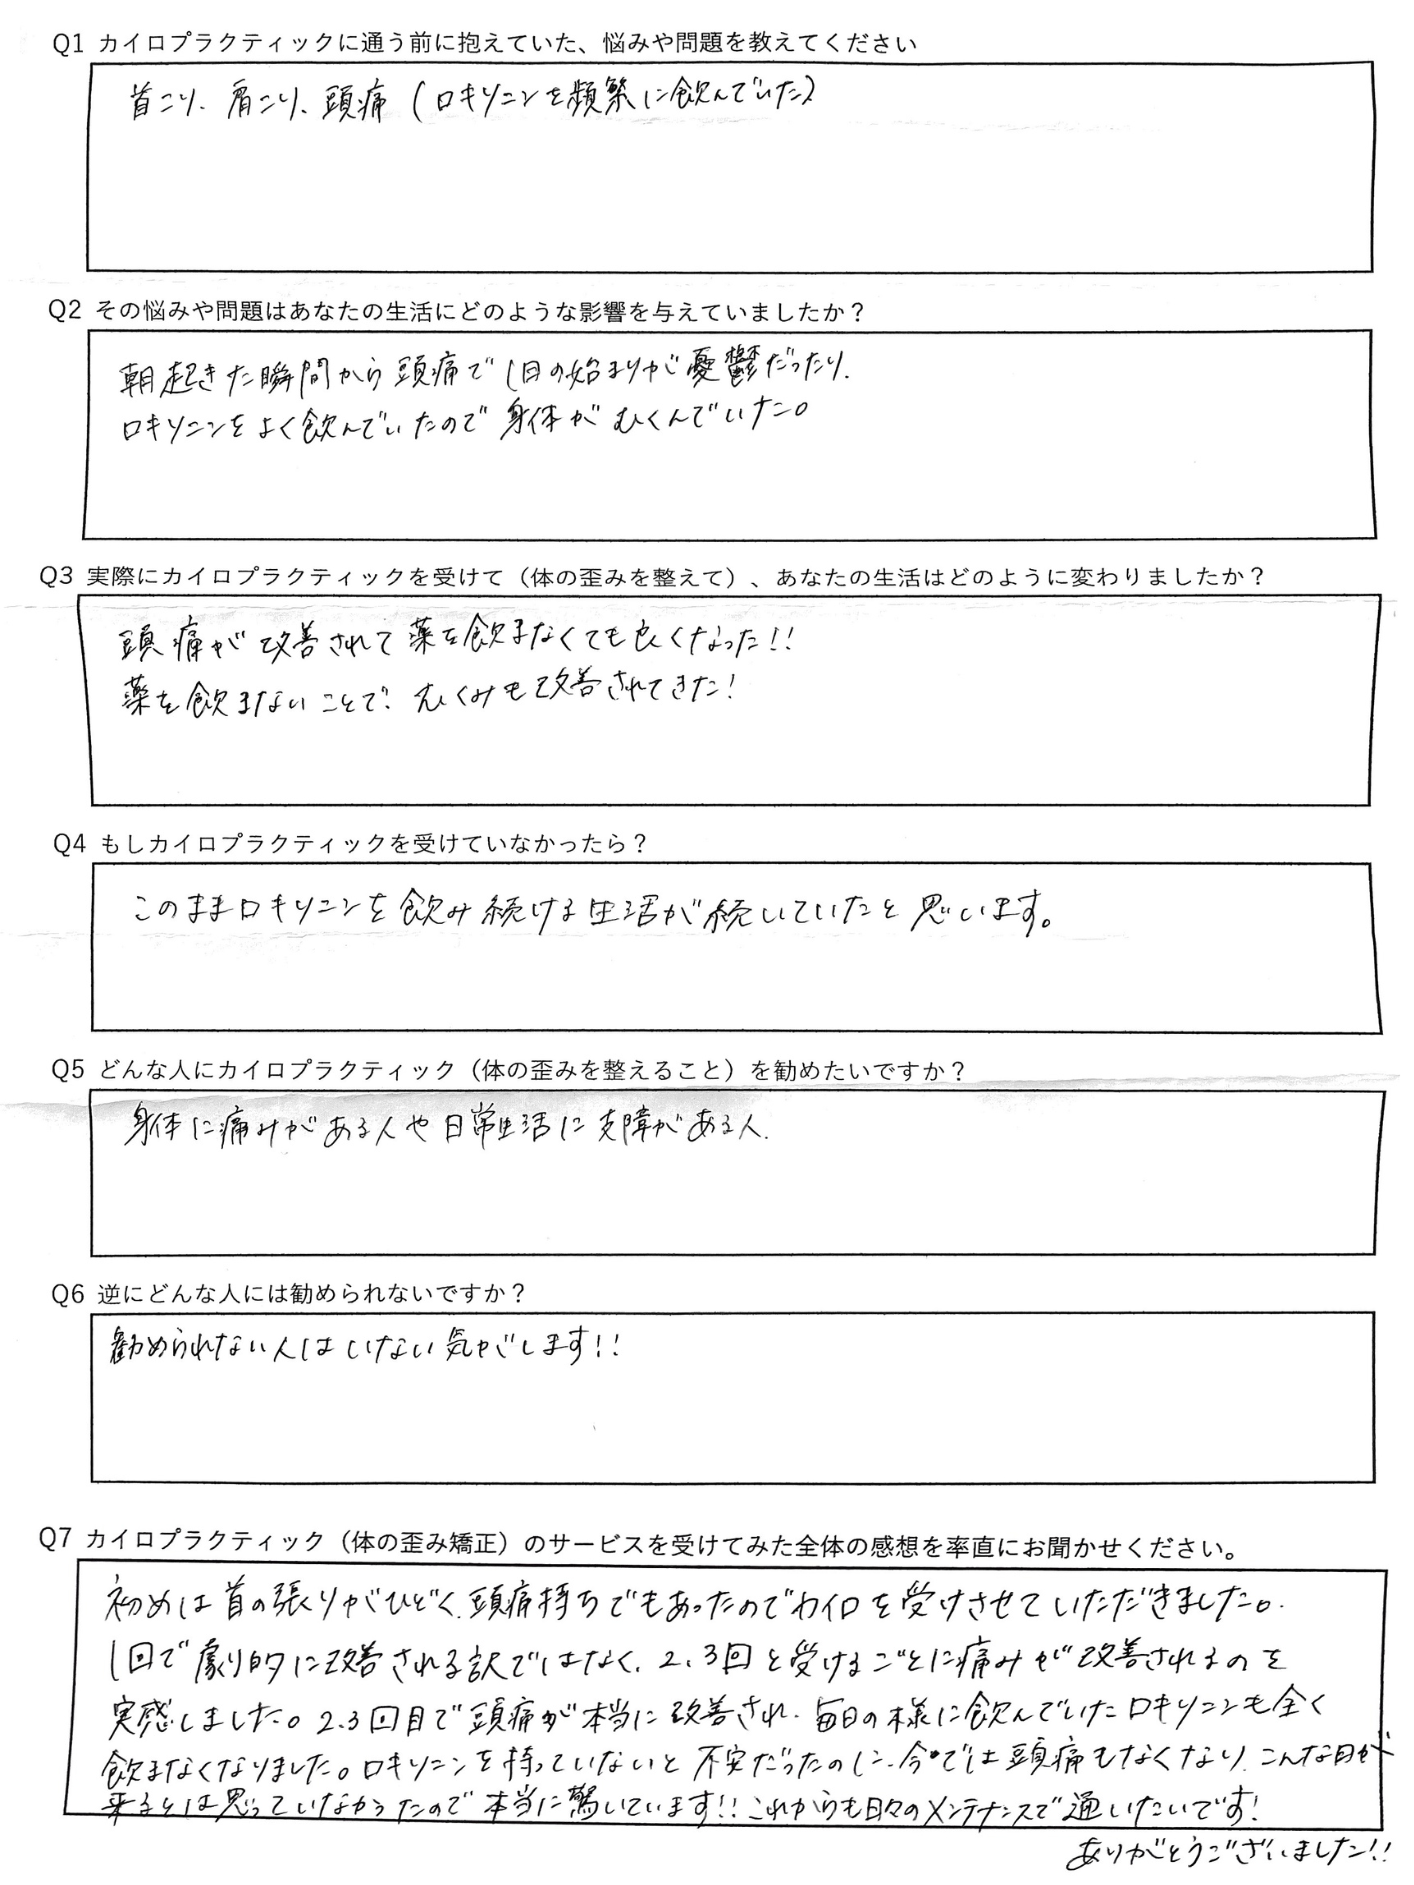 Q1 カイロプラクティックに通う前に抱えていた、悩みや問題を教えてください
首こり、肩こり、頭痛(ロキソニンを頻繁に飲んでいた)
Q2 その悩みや問題はあなたの生活にどのような影響を与えていましたか?
朝起きた瞬間から頭痛で1日の始まりが憂鬱だったり、
ロキソニンをよく飲んでいたので身体がむくんでいた。
Q3 実際にカイロプラクティックを受けて(体の歪みを整えて)、あなたの生活はどのように変わりましたか?
頭痛が改善されて薬を飲まなくても良くなった!!
薬を飲まないことで、むくみも改善されてきた!
Q4 もしカイロプラクティックを受けていなかったら?
このままロキソニンを飲み続ける生活が続いていたと思います。
Q5 どんな人にカイロプラクティック(体の歪みを整えること)を勧めたいですか?
身体に痛みがある人や日常生活に支障がある人。
Q6 逆にどんな人には勧められないですか?
勧められない人はいない気がします!!
Q7 カイロプラクティック(体の歪み矯正)のサービスを受けてみた全体の感想を率直にお聞かせください。
初めは首の張りがひどく、頭痛持ちでもあったのでカイロを受けさせていただきました。
1回で劇的に改善される訳ではなく、2、3回と受けるごとに痛みが改善されるのを
実感しました。2、3回目で頭痛が本当に改善され、毎日の様に飲んでいたロキソニンも全く
飲まなくなりました。ロキソニンを持っていないと不安だったのに、今では頭痛もなくなり、こんな日が
来るとは思っていなかったので本当に驚いています!!これからも日々のメンテナンスで通いたいです!
ありがとうございました!!